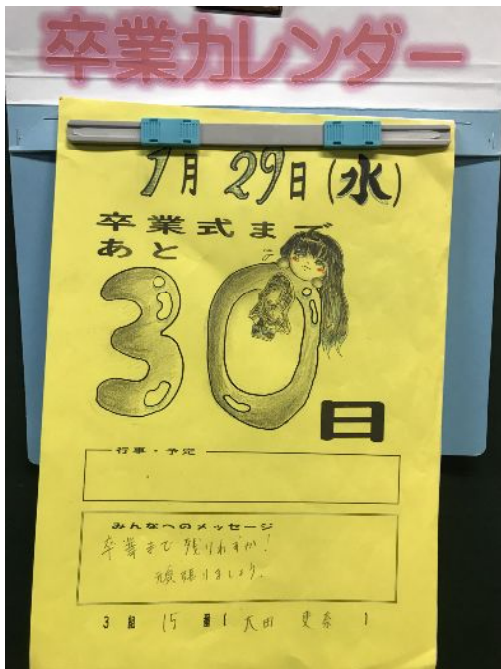 卒業カレンダー
1月29日(水)
卒業式まで
あと
30
日
行事・予定
みんなへのメッセージ
卒業まで残りわずか!
頑張りましょう。
3組 15番(太田 )